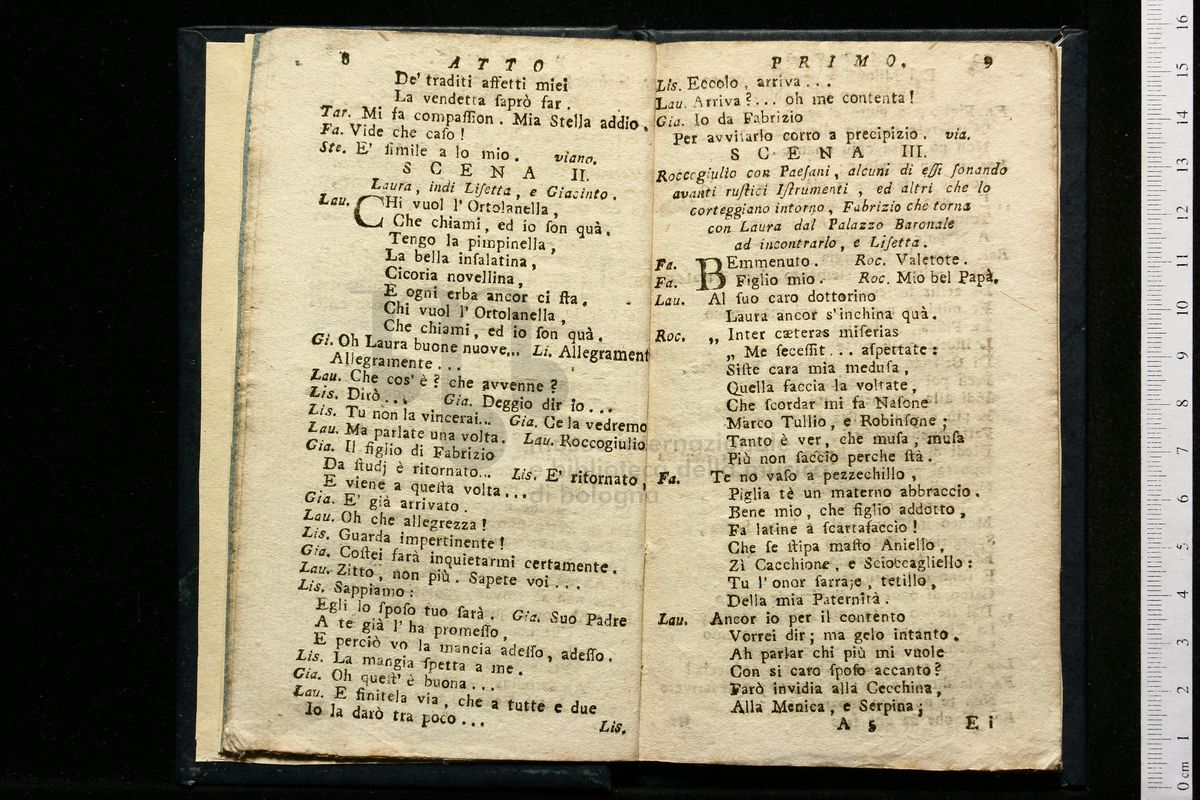 8 ATTO
De' traditi affetti miei
La vendetta ſaprò far.
Tar. Mi fa compaſſion. Mia Stella addio.
Fa. Vide che caſo!
Ste. E' ſimile a lo mio. viano.
SCENA II.
Laura, indi Liſetta, e Giacinto.
Lau. CHi vuol l' Ortolanella,
Che chiami, ed io ſon quà.
Tengo la pimpinella,
La bella inſalatina,
Cicoria novellina,
E ogni erba ancor ci ſta.
Chi vuol l' Ortolanella,
Che chiami, ed io ſon quà.
Gi. Oh Laura buone nuove... Li. Allegrament
Allegramente...
Lau. Che cos' è? che avvenne?
Lis. Dirò... Gia. Deggio dir io...
Lis. Tu non la vincerai... Gia. Ce la vedremo
Lau. Ma parlate una volta. Lau. Roccogiulio
Gia. Il figlio di Fabrizio
Da ſtudj è ritornato... Lis. E' ritornato,
E viene a queſta volta...
Gia. E' già arrivato.
Lau. Oh che allegrezza!
Lis. Guarda impertinente!
Gia. Coſtei farà inquietarmi certamente.
Lau. Zitto, non più. Sapete voi...
Lis. Sappiamo:
Egli lo ſpoſo tuo ſarà. Gia. Suo Padre
A te già l' ha promeſſo,
E perciò vo la mancia adeſſo, adeſſo.
Lis. La mangia ſpetta a me.
Gia. Oh queſt' è buona...
Lau. E finitela via, che a tutte e due
Io la darò tra poco...
Lis.
PRIMO. 9
Lis. Eccolo, arriva...
Lau. Arriva?... oh me contenta!
Gia. Io da Fabrizio
Per avviſarlo corro a precipizio. via.
SCENA III.
Roccogiulio con Paeſani, alcuni di eſſi ſonando
avanti ruſtici Iſtrumenti, ed altri che lo
corteggiano intorno, Fabrizio che torna
con Laura dal Palazzo Baronale
ad incontrarlo, e Liſetta.
Fa. BEmmenuto. Roc. Valetote.
Fa. Figlio mio. Roc. Mio bel Papà.
Lau. Al ſuo caro dottorino
Laura ancor s'inchina quà.
Roc. „ Inter cæteras miſerias
„ Me ſeceſſit... aſpettate:
Siſte cara mia meduſa,
Quella faccia la voltate,
Che ſcordar mi fa Naſone
Marco Tullio, e Robinſone;
Tanto è ver, che muſa, muſa
Più non ſaccio perche ſtà.
Fa. Te no vaſo a pezzechillo,
Piglia tè un materno abbraccio.
Bene mio, che figlio addotto,
Fa latine a ſcartafaccio!
Che ſe ſtipa maſto Aniello,
Zì Cacchione, e Scioccagliello:
Tu l' onor ſarraje, tetillo,
Della mia Paternità.
Lau. Ancor io per il contento
Vorrei dir; ma gelo intanto.
Ah parlar chi più mi vuole
Con sì caro ſpoſo accanto?
Farò invidia alla Cecchina,
Alla Menica, e Serpina;
A 5 Ei
di bologna
0 cm 1 2 3 4 5 6 7 8 9 10 11 12 13 14 15 16